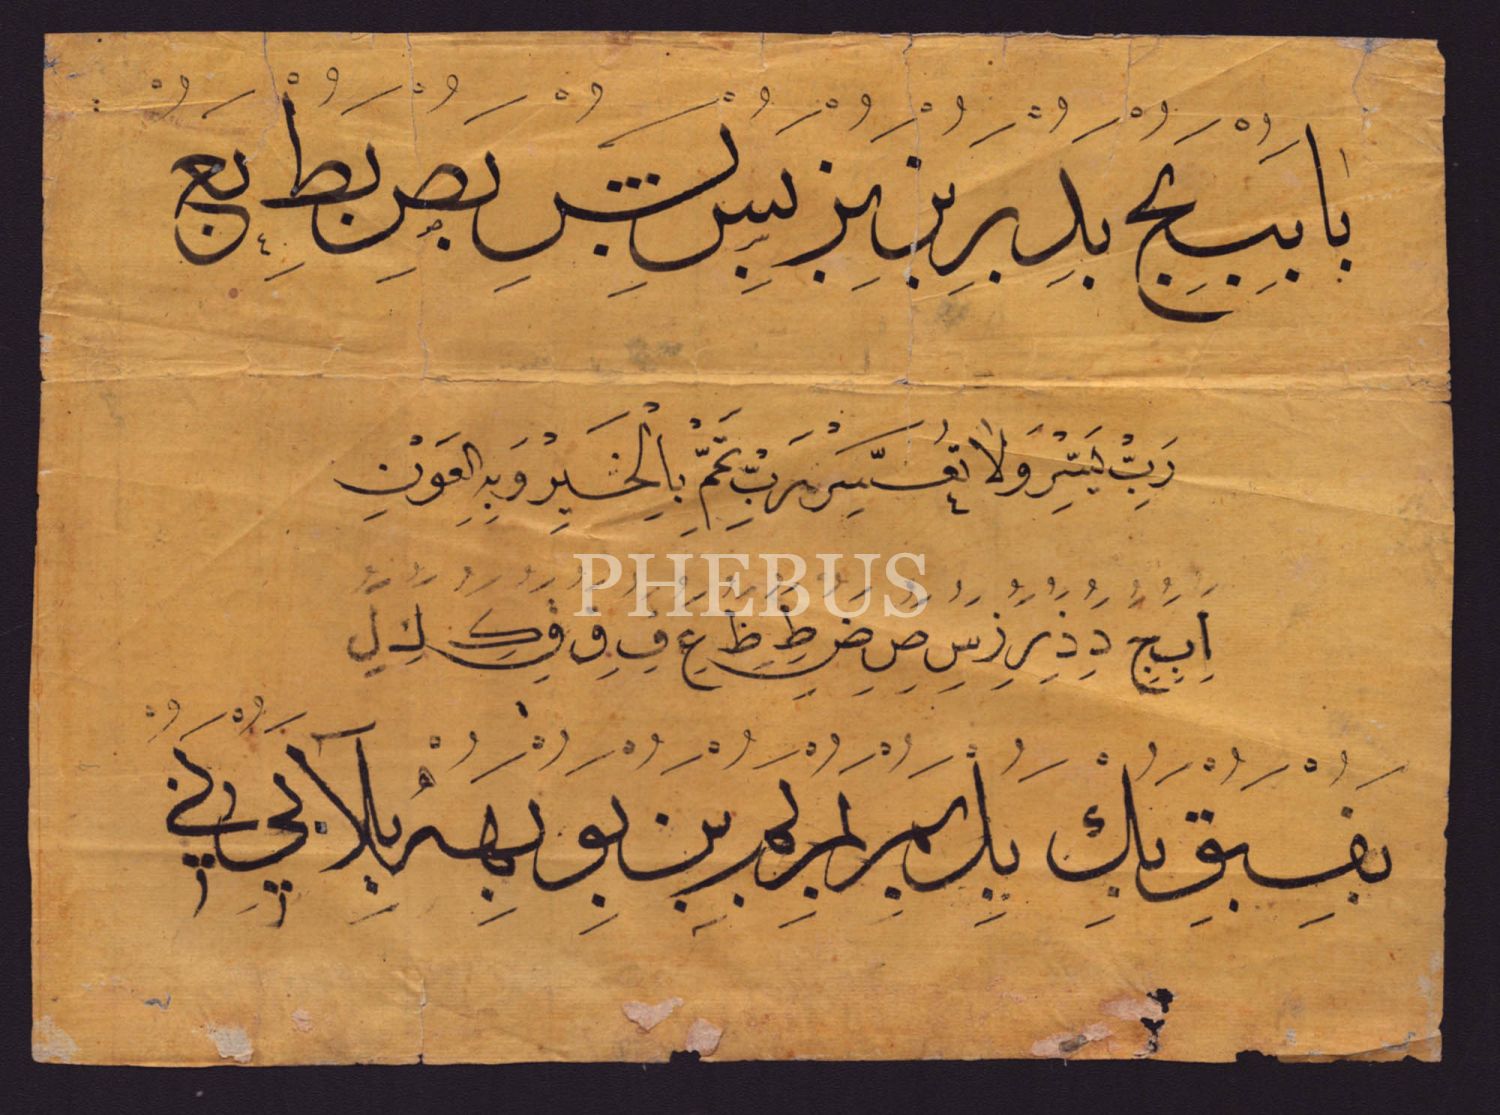 با بب بج بد بر بن بز بس بش بص بط بع
رَبِّ يَسِّرْ وَلَا تُعَسِّرْ رَبِّ تَمِّمْ بِالْخَيْرِ وَبِهِ الْعَوْنِ
PHEBUS
ا ب ج د ذ ر ز س ص ض ط ظ ع ف ق ك ل
بف بق بك بل بم بن بو به بلا بي